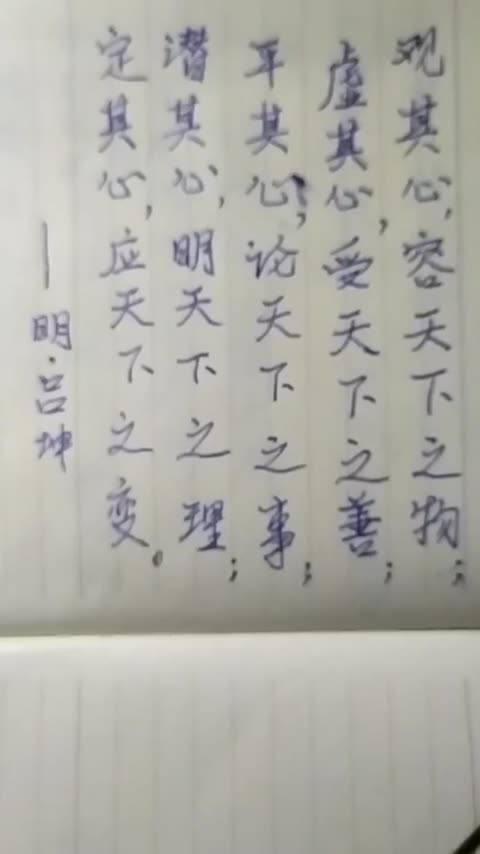 观其心，容天下之物；
虚其心，受天下之善；
平其心，论天下之事；
潜其心，明天下之理；
定其心，应天下之变。
——明·吕坤